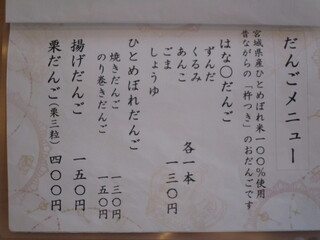 だんごメニュー
宮城県産ひとめぼれ米一〇〇%使用
昔ながらの「杵つき」のおだんごです
はな〇だんご
ずんだ
くるみ
あんこ
ごま
しょうゆ
各一本
一三〇円
ひとめぼれだんご
焼きだんご 一三〇円
のり巻きだんご 一五〇円
揚げだんご 一五〇円
栗だんご(栗三粒) 四〇〇円